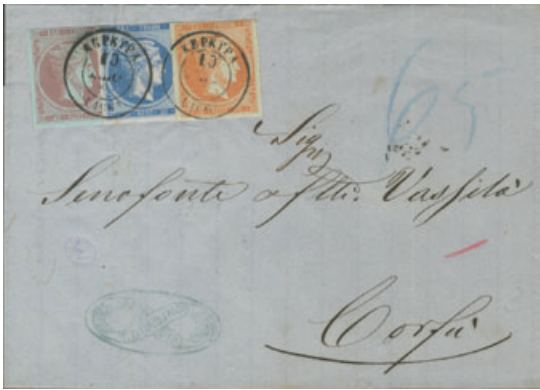 ΚΕΡΚΥΡΑ ΚΕΡΚΥΡΑ
10 10
65
Sigri
Senofonte e flli. Vassilà
Corfù